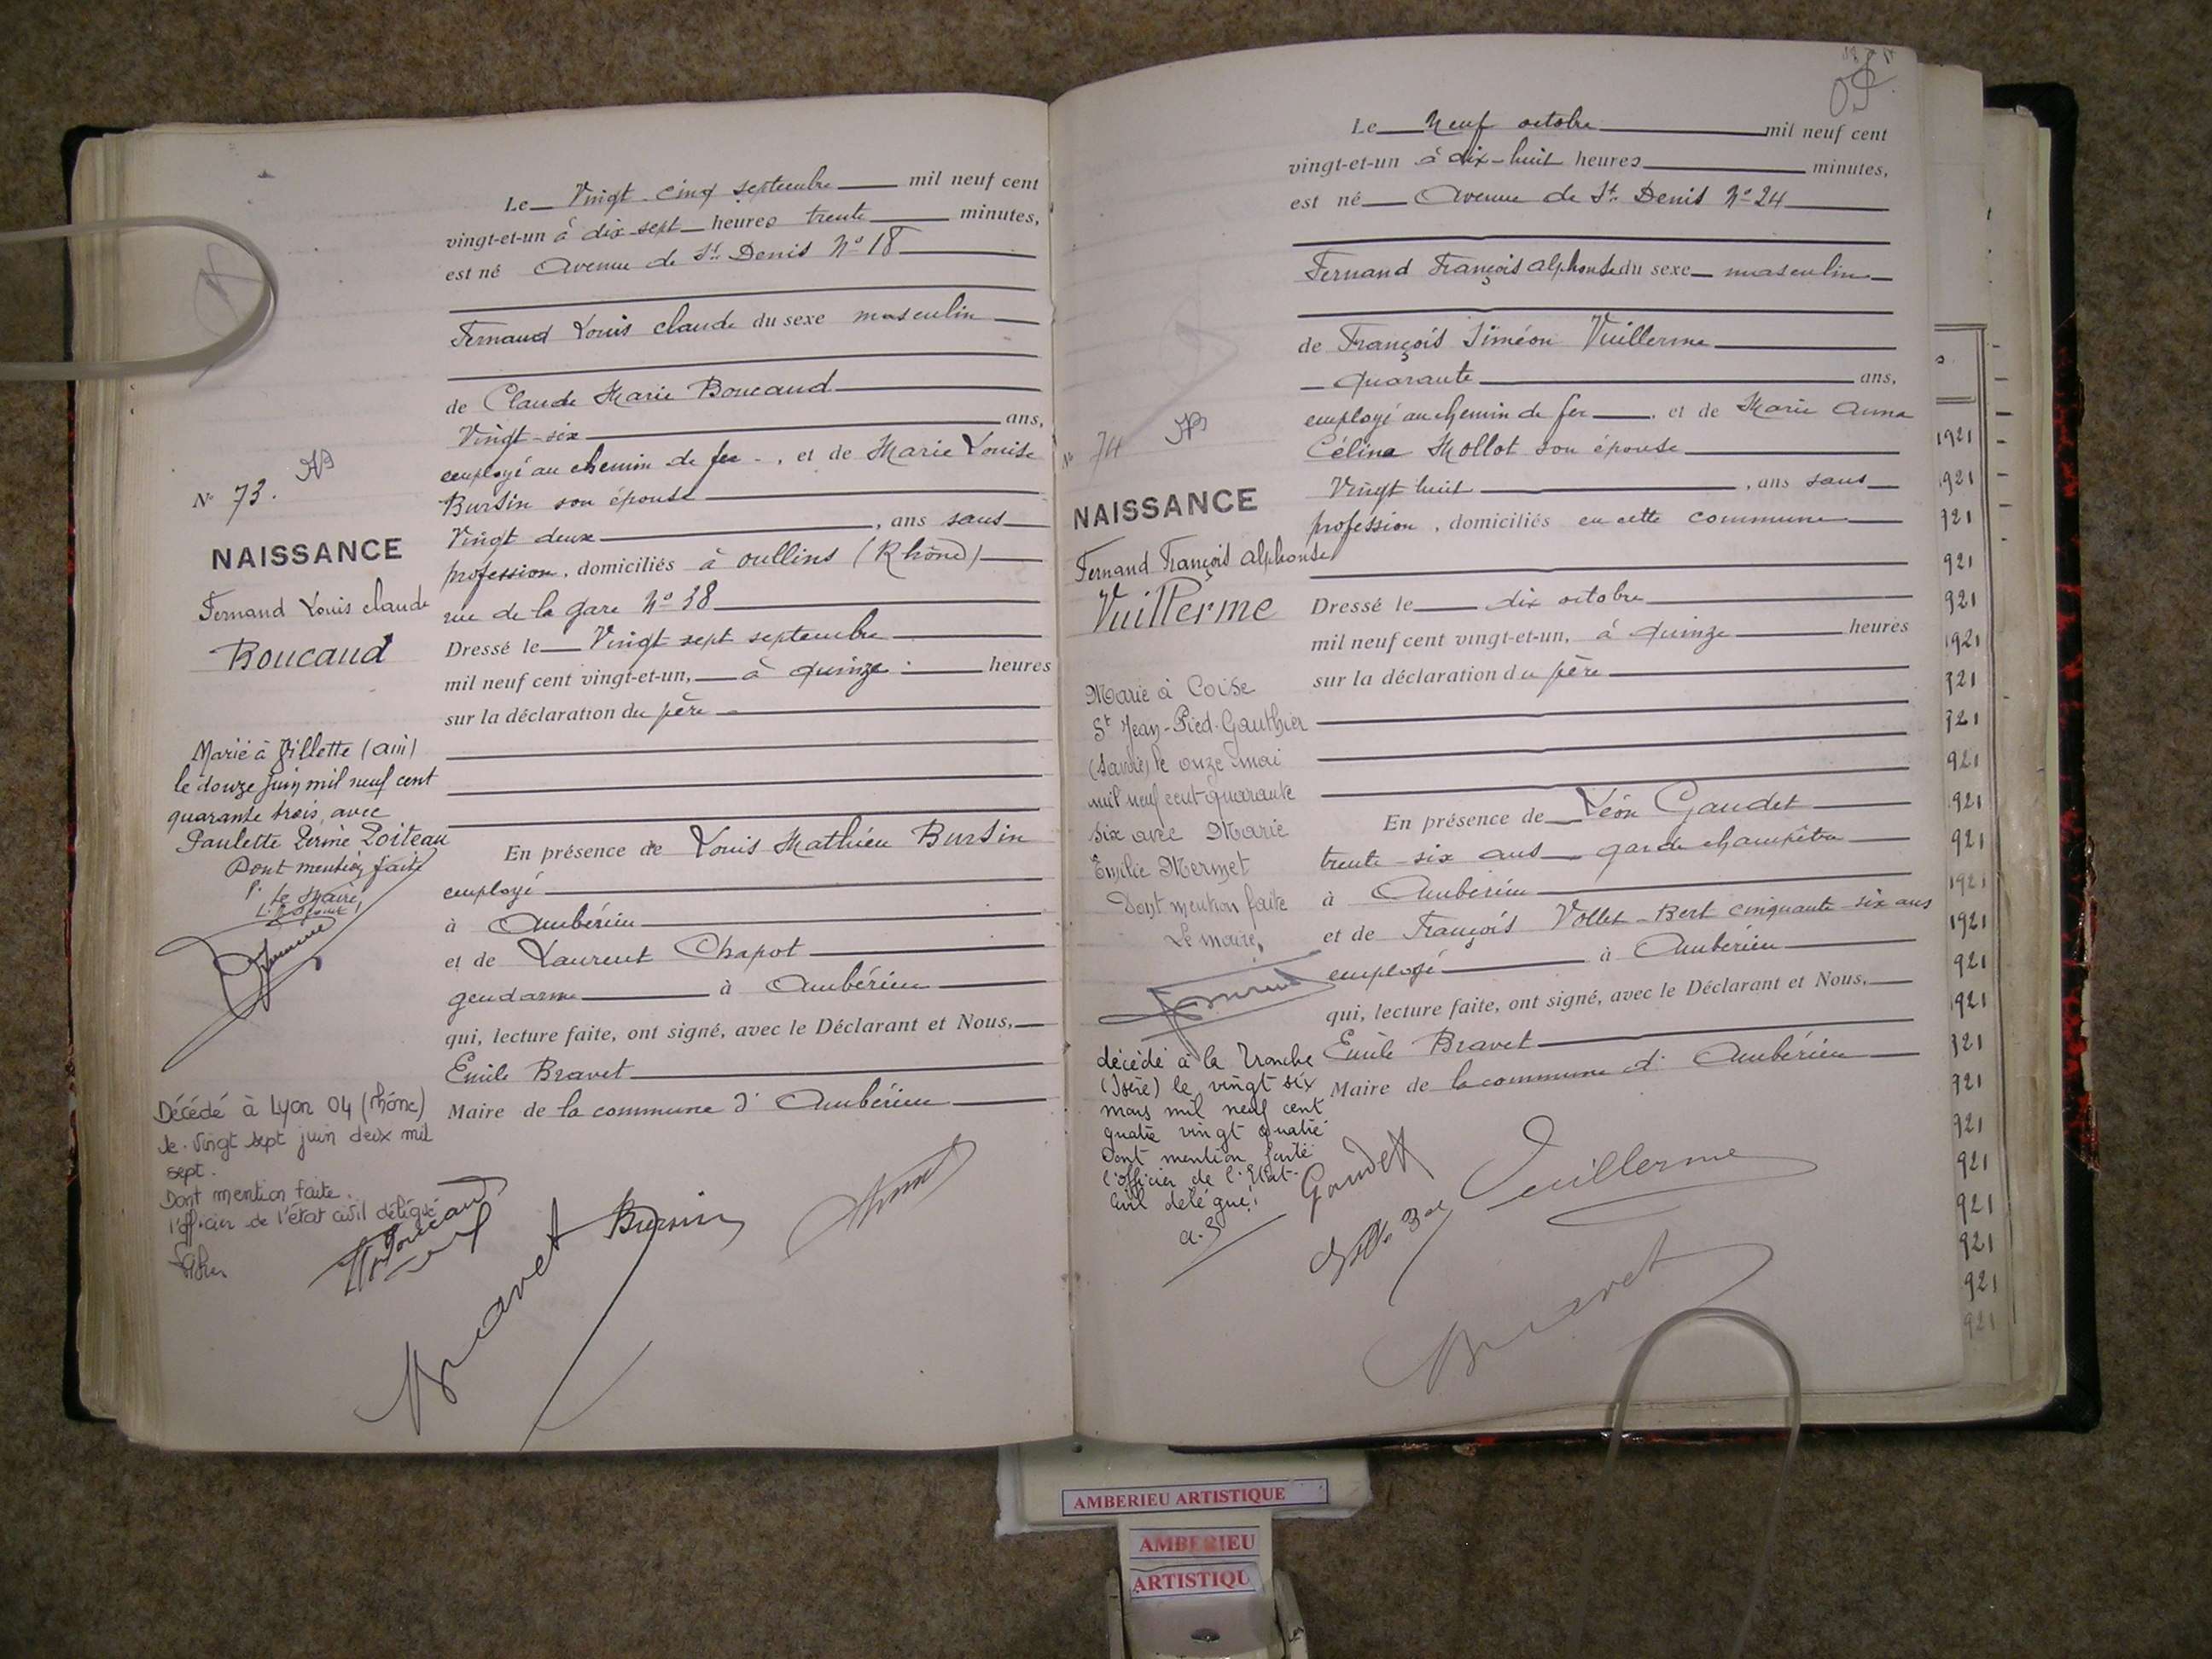 Le Vingt-cinq septembre mil neuf cent
vingt-et-un à dix-sept heures trente minutes,
est né Avenue de St Denis No 18
Fernand Louis Claude du sexe masculin
de Claude Marie Boucaud
Vingt-six ans,
employé au chemin de fer, et de Marie Louise
Bursin son épouse
Vingt deux, ans sans
profession, domiciliés à Oullins (Rhône)
rue de la Gare No 38
Dressé le Vingt sept septembre
mil neuf cent vingt-et-un, à quinze heures
sur la déclaration du père
En présence de Louis Mathieu Bursin
employé
à Ambérieu
et de Laurent Chapot
gendarme à Ambérieu
qui, lecture faite, ont signé, avec le Déclarant et Nous,
Emile Bravet
Maire de la commune d'Ambérieu
No 73.
NAISSANCE
Fernand Louis Claude
Boucaud
Marié à Villette (Ain)
le douze juin mil neuf cent
quarante trois, avec
Paulette Perine Poiteau
Dont mention faite
P. Le Maire,
Décédé à Lyon 04 (Rhône)
le vingt sept juin deux mil
sept.
Dont mention faite.
l'officier de l'état civil délégué
Bravet
Bursin
Le Neuf octobre mil neuf cent
vingt-et-un à dix-huit heures minutes,
est né Avenue de St Denis No 24
Fernand François Alphonse du sexe masculin
de François Siméon Vuillerme
Quarante ans,
employé au chemin de fer, et de Marie Anna
Célina Mollot son épouse
Vingt huit, ans sans
profession, domiciliés en cette commune
Dressé le dix octobre
mil neuf cent vingt-et-un, à quinze heures
sur la déclaration du père
En présence de Léon Gaudet
trente-six ans garde champêtre
à Ambérieu
et de François Vollet-Bert cinquante-six ans
employé à Ambérieu
qui, lecture faite, ont signé, avec le Déclarant et Nous,
Emile Bravet
Maire de la commune d'Ambérieu
No 74
NAISSANCE
Fernand François Alphonse
Vuillerme
Marié à Coise
St Jean-Pied-Gauthier
(Savoie) le onze mai
mil neuf cent quarante
six avec Marie
Emilie Mermet
Dont mention faite
Le maire,
décédé à la Tronche
(Isère) le vingt six
mars mil neuf cent
quatre vingt quatre
Dont mention faite
l'officier de l'Etat-
Civil délégué:
Gaudet
Vuillerme
Bravet
1921
1921
921
921
921
1921
921
921
921
921
921
1921
1921
921
1921
921
921
921
921
921
921
921
921
AMBERIEU ARTISTIQUE
AMBERIEU
ARTISTIQU